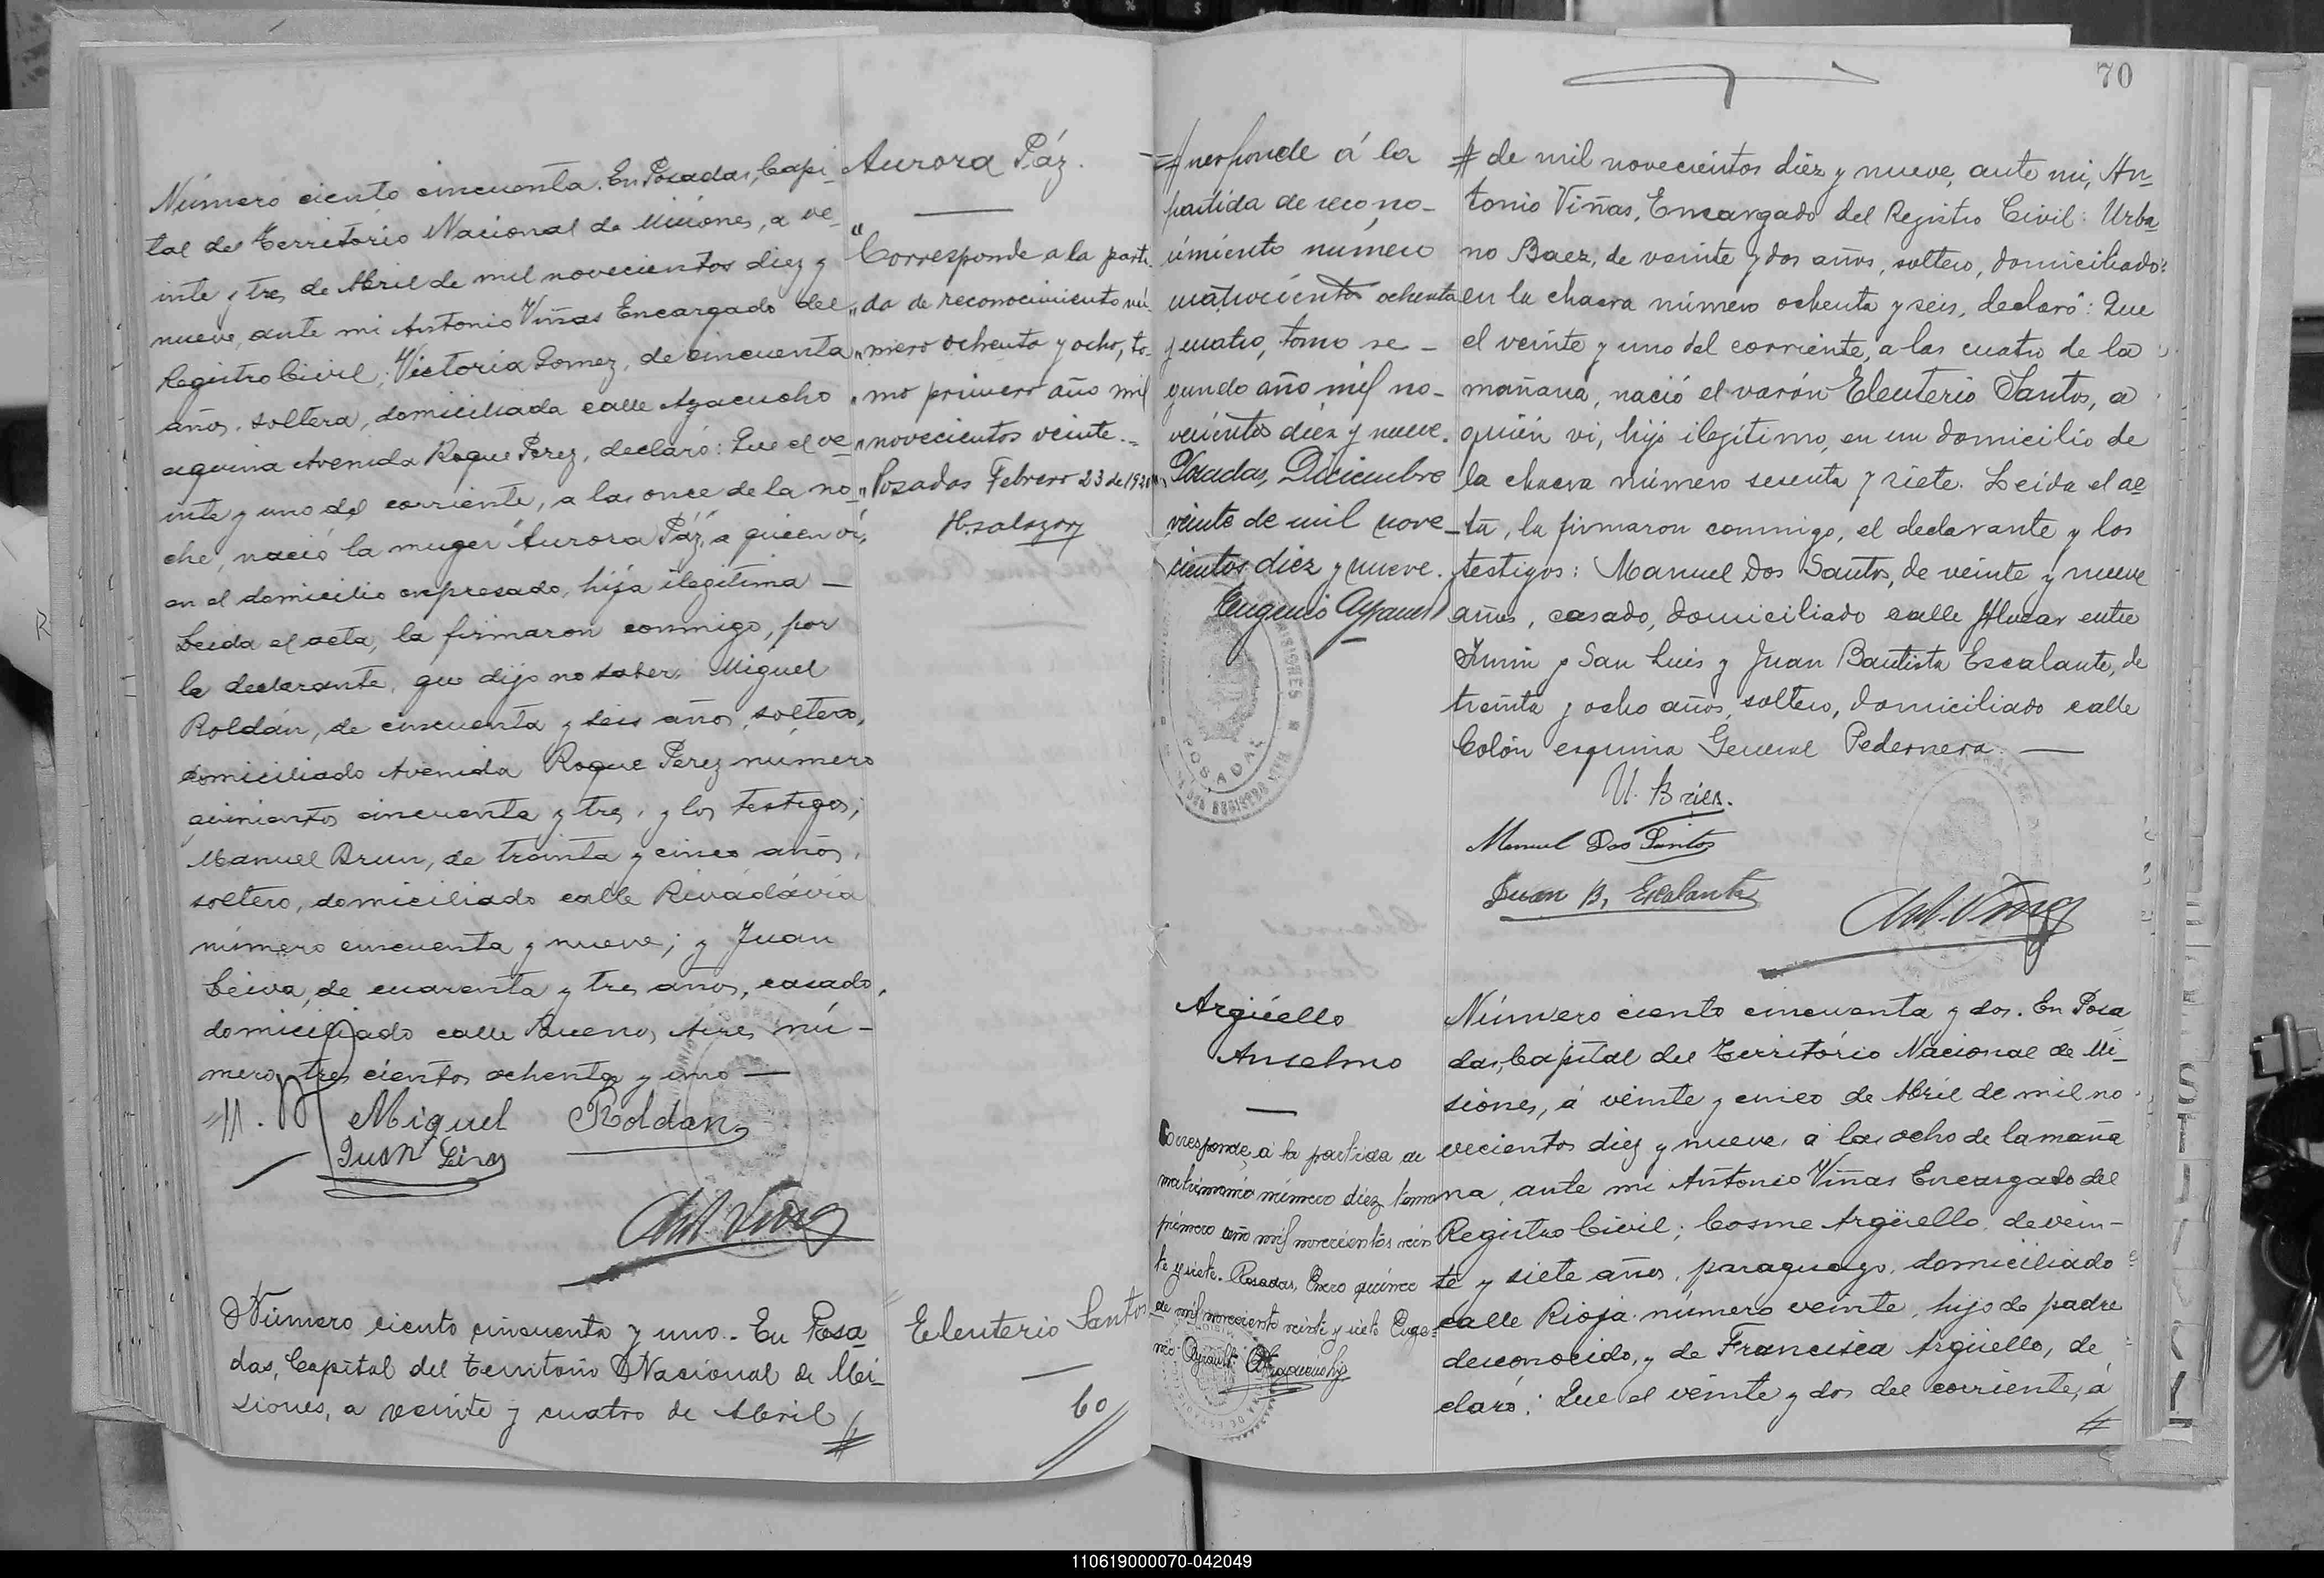 Número ciento cincuenta. En Posadas, Capi-
tal del Territorio Nacional de Misiones, a ve-
inte y tres de Abril de mil novecientos diez y
nueve, ante mi Antonio Viñas Encargado del
Registro Civil; Victoria Gomez, de cincuenta
años, soltera, domiciliada calle Ayacucho
esquina Avenida Roque Perez, declaró: Que el ve-
inte y uno del corriente, a las once de la no-
che, nació la muger "Aurora Páz", a quien ví,
en el domicilio expresado, hija ilegitima —
Leida el acta, la firmaron conmigo, por
la declarante, que dijo no saber: Miguel
Roldán, de cincuenta y seis años, soltero,
domiciliado Avenida Roque Perez número
quinientos cincuenta y tres, y los testigos;
Manuel Brun, de treinta y cinco años,
soltero, domiciliado calle Rivadávia
número cincuenta y nueve; y Juan
Leiva, de cuarenta y tres años, casado,
domiciliado calle Buenos Aires nú-
mero tres cientos ochenta y uno —
M. B
Miguel Roldan
Juan Leiva
Ant. Viñas
Número ciento cincuenta y uno. En Posa
das, Capital del territorio Nacional de Mi-
siones, a veinte y cuatro de Abril #
Aurora Páz.
"Corresponde a la parti-
"da de reconocimiento nú-
"mero ochenta y ocho, to-
"mo primero año mil
"novecientos veinte.=
"Posadas Febrero 23 de 1920"
Eleuterio Santos
60
70
# rresponde á la
partida de recono-
cimiento número
cuatrocientos ochenta
y cuatro, tomo se-
gundo año mil no-
vecientos diez y nueve.
Posadas, Diciembre
veinte de mil nove-
cientos diez y nueve.
Eugenio
MISIONES
POSADAS
Argüello
Anselmo
Corresponde a la partida de
matrimonio número diez tomo
primero año mil novecientos vein
te y siete. Posadas, Enero quince
de mil novecientos veinte y siete Euge-
nio
# de mil novecientos diez y nueve, ante mi, An-
tonio Viñas, Encargado del Registro Civil: Urba
no Baez, de veinte y dos años, soltero, domiciliado
en la chacra número ochenta y seis, declaró: Que
el veinte y uno del corriente, a las cuatro de la
mañana, nació el varón Eleuterio Santos, a
quién vi, hijo ilegítimo, en un domicilio de
la chacra número sesenta y siete. Leida el ac
ta, la firmaron conmigo, el declarante y los
testigos: Manuel Dos Santos, de veinte y nueve
años, casado, domiciliado calle Azcar entre
Junin y San Luis y Juan Bautista Escalante, de
treinta y ocho años, soltero, domiciliado calle
Colón esquina General Pedernera. —
U. Báez.
Manuel Dos Santos
Juan B, Escalante
Ant. Viñas
Número ciento cincuenta y dos. En Posa
das, Capital del Territorio Nacional de Mi-
siones, á veinte y cinco de Abril de mil no
vecientos diez y nueve, a las ocho de la maña
na, ante mi Antonio Viñas Encargado del
Registro Civil; Cosme Argüello, de vein-
te y siete años, paraguayo, domiciliado
calle Rioja número veinte, hijo de padre
desconocido, y de Francisca Argüello, de
claró: Que el veinte y dos del corriente, á
#
110619000070-042049